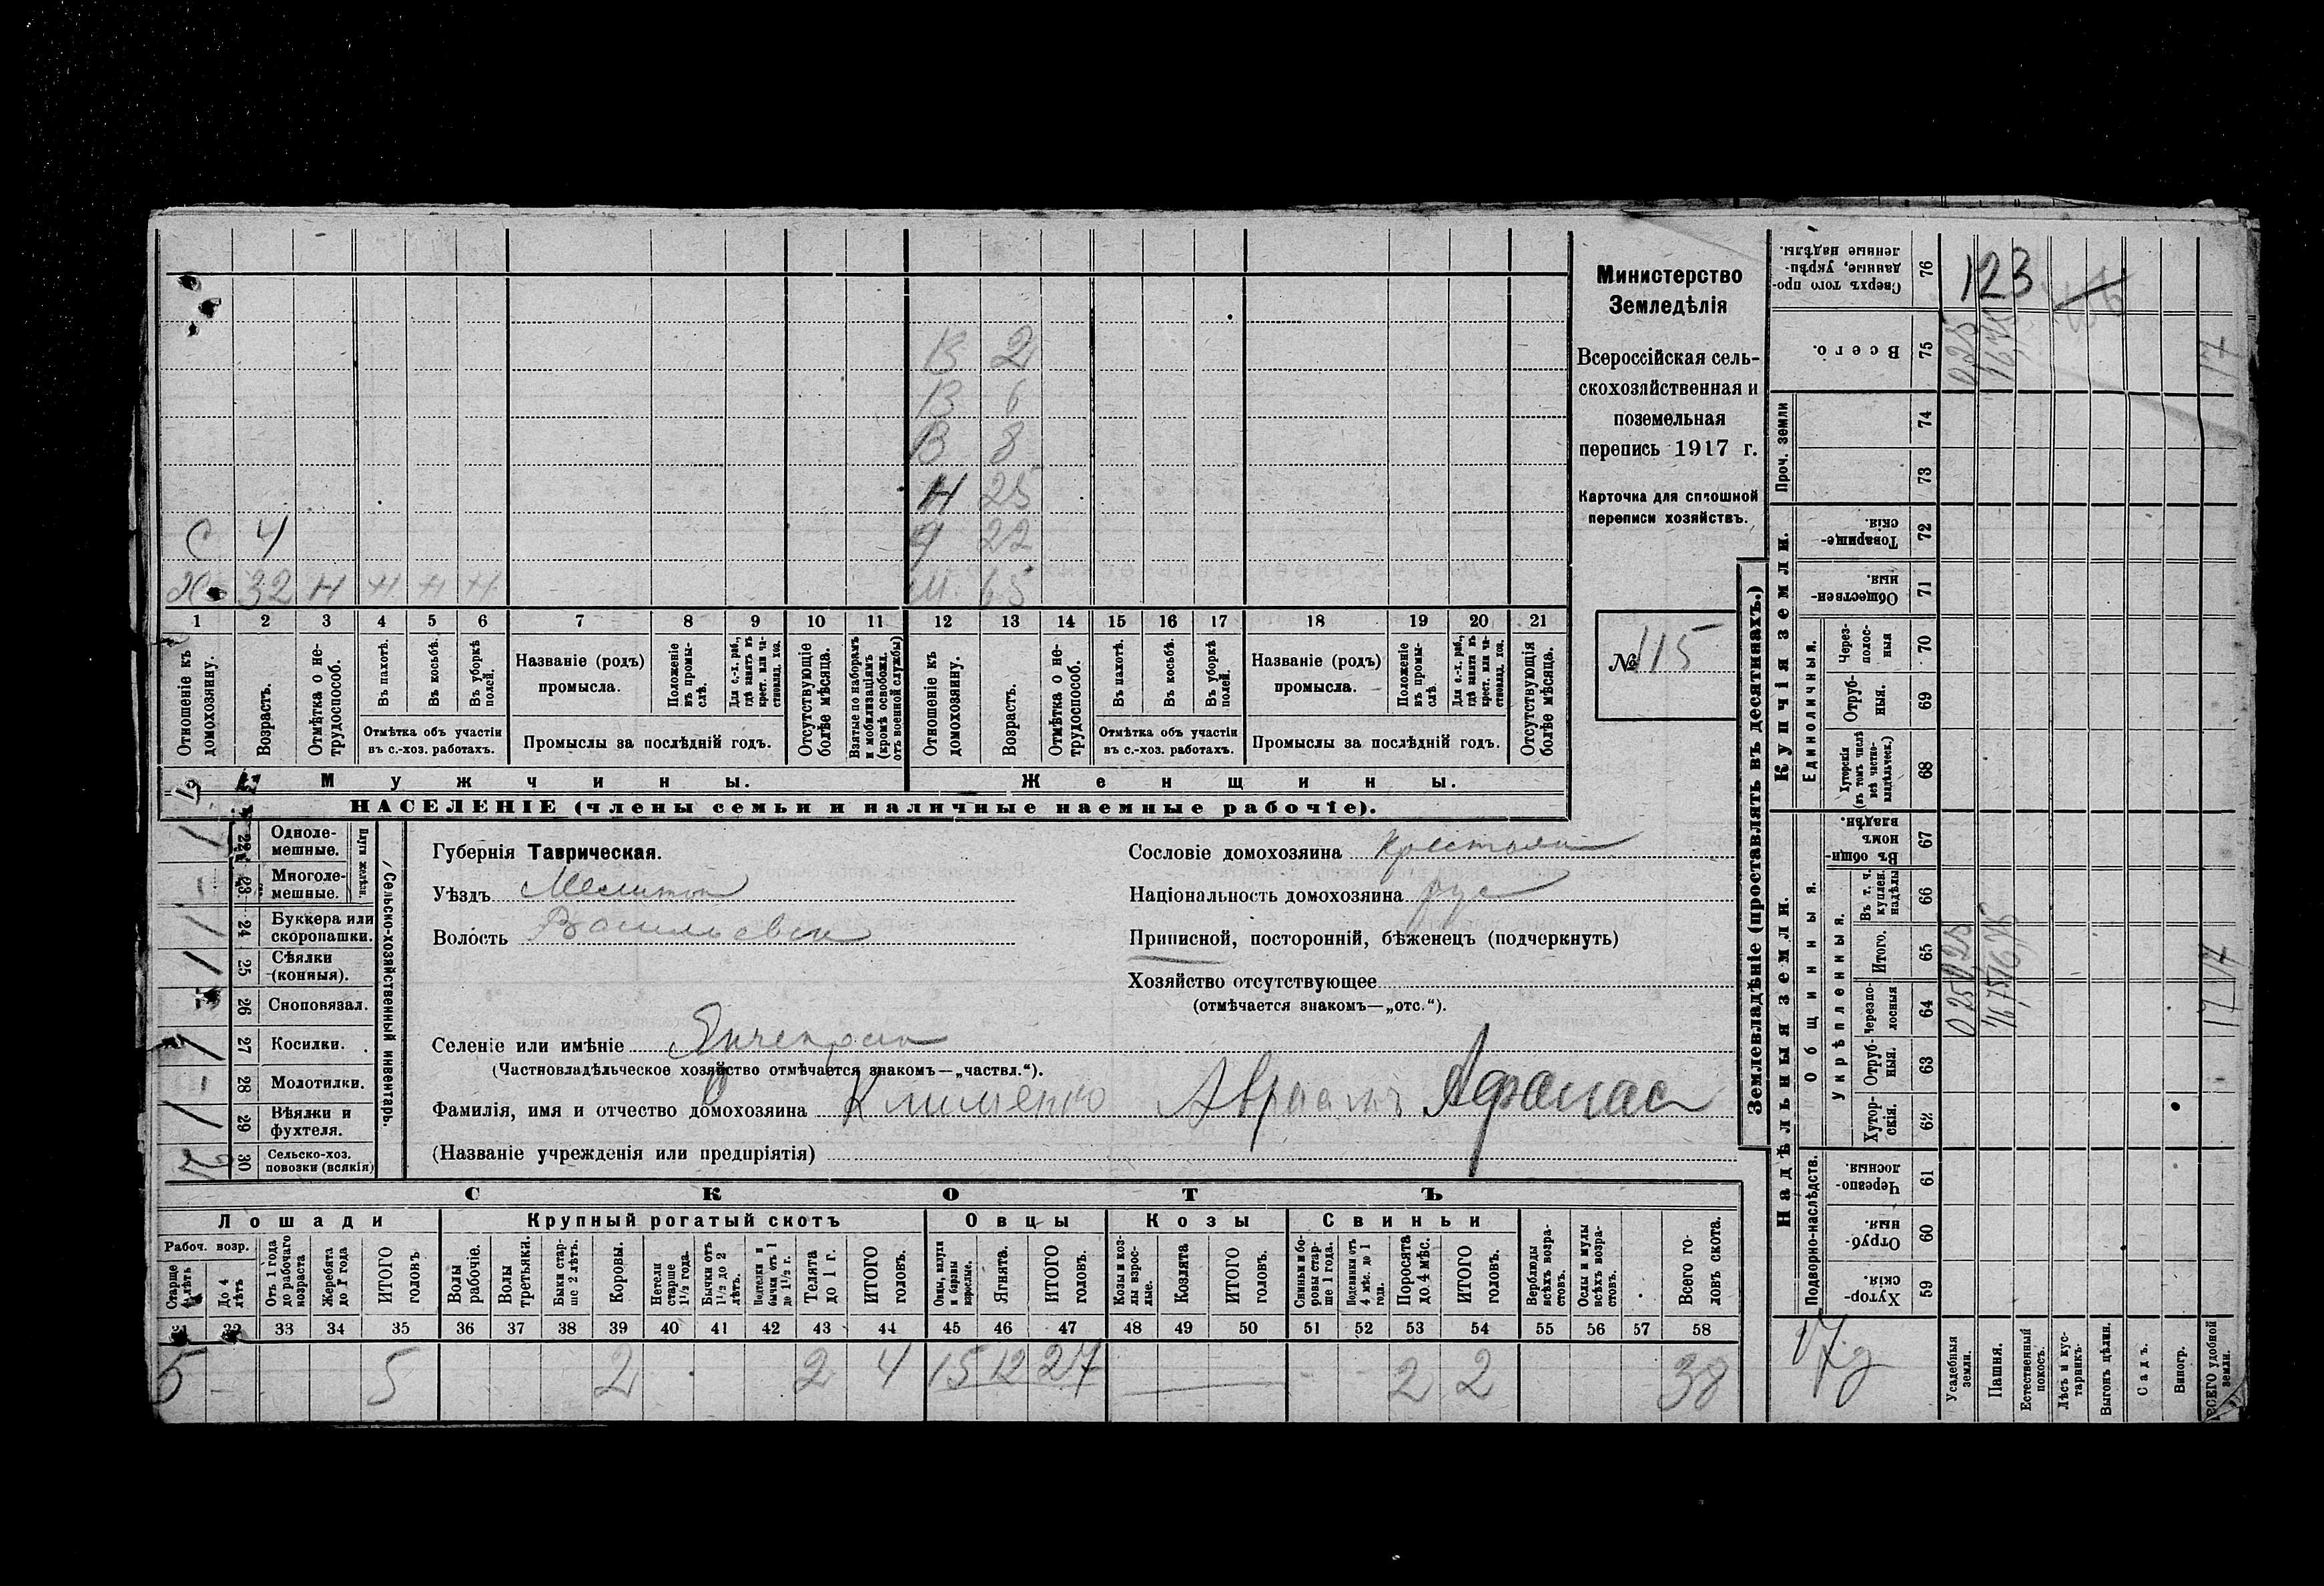 Министерство
Земледѣлія
Всероссійская сель-
скохозяйственная и
поземельная
перепись 1917 г.
Карточка для сплошной
переписи хозяйствъ.
№ 115
В 2
В 6
В 8
Н 25
С 4
22
Х 32 Н Н Н Н
М. 65
1 2 3 4 5 6 7 8 9 10 11 12 13 14 15 16 17 18 19 20 21
Отношеніе къ домохозяину.
Возрастъ.
Отмѣтка о не-трудоспособ.
Въ пахотѣ.
Въ косьбѣ.
Въ уборкѣ полей.
Отмѣтка объ участіи
въ с.-хоз. работахъ.
Названіе (родъ)
промысла.
Положеніе въ промы-слѣ.
Для с.-х. раб., гдѣ занятъ въ крест. или ча-стновлад. хоз.
Промыслы за послѣдній годъ.
Отсутствующіе болѣе мѣсяца.
Взятые по наборамъ и мобилизаціямъ (кромѣ освобожд. отъ военной службы)
Отношеніе къ домохозяину.
Возрастъ.
Отмѣтка о не-трудоспособ.
Въ пахотѣ.
Въ косьбѣ.
Въ уборкѣ полей.
Отмѣтка объ участіи
въ с.-хоз. работахъ.
Названіе (родъ)
промысла.
Положеніе въ промы-слѣ.
Для с.-х. раб., гдѣ заняты въ крест. или ча-стновлад. хоз.
Промыслы за послѣдній годъ.
Отсутствующія болѣе мѣсяца.
Мужчины.
Женщины.
НАСЕЛЕНІЕ (члены семьи и наличные наемные рабочіе).
Сельско-хозяйственный инвентарь.
22 Одноле-мешные.
23 Многоле-мешные.
24 Буккера или скоропашки.
25 Сѣялки (конныя).
26 Сноповязал.
27 Косилки.
28 Молотилки.
29 Вѣялки и фухтеля.
30 Сельско-хоз. повозки (всякія)
Губернія Таврическая.
Уѣздъ Мелитоп
Волость Васильевск
Селеніе или имѣніе Янчекрак
(Частновладѣльческое хозяйство отмѣчается знакомъ—„частвл.“).
Фамилія, имя и отчество домохозяина Клименко Авраамъ Афанас
(Названіе учрежденія или предпріятія)
Сословіе домохозяина Крестьян
Національность домохозяина рус
Приписной, посторонній, бѣженецъ (подчеркнуть)
Хозяйство отсутствующее
(отмѣчается знакомъ—„отс.“).
СКОТЪ
Лошади Крупный рогатый скотъ Овцы Козы Свиньи
Рабоч. возр.
Старше 4 лѣтъ
До 4 лѣтъ
Отъ 1 года до рабочаго возраста
Жеребята до 1 года
ИТОГО головъ
Волы рабочіе.
Волы третьяки.
Быки стар-ше 2 лѣтъ.
Коровы.
Нетели старше 1½ года.
Бычки отъ 1½ до 2 лѣтъ.
Телята до 1 г.
ИТОГО головъ.
Овцы, валухи и бараны взрослые.
Ягнята.
ИТОГО головъ.
Козы и коз-лы взрос-лые.
Козлята
ИТОГО головъ.
Свиньи и бо-ровы стар-ше 1 года.
Подсвинки отъ 4 мѣс. до 1 года.
Поросята до 4 мѣс.
ИТОГО головъ.
Верблюды всѣхъ возра-стовъ.
Ослы и мулы всѣхъ возра-стовъ.
Всего го-ловъ скота.
31 32 33 34 35 36 37 38 39 40 41 42 43 44 45 46 47 48 49 50 51 52 53 54 55 56 57 58
5 5 2 2 4 15 12 27 2 2 38
Землевладѣніе (проставлять въ десятинахъ.)
Надѣльныя земли.
Купчія земли.
Проч. земли
Подворно-наслѣдств.
Общинныя.
Укрѣпленныя.
Единоличныя.
59 Хутор-скія.
60 Отруб-ныя.
61 Черезпо-лосныя.
62 Хутор-скія.
63 Отруб-ныя.
64 Черезпо-лосныя
65 Итого.
66 Въ т. ч. куплен. надѣлы
67 Въ общин-номъ владѣн.
68 Хуторскія (въ томъ числѣ всѣ частно-владѣльческ.)
69 Отруб-ныя.
70 Через-полос-ныя
71 Обществен-ныя.
72 Товарище-скія.
73
74
75 Всего.
76 Сверхъ того про-данные, укрѣп-ленные надѣлы.
Усадебныя земли.
Пашня.
Естественный покосъ.
Лѣсъ и кус-тарникъ.
Выгонъ цѣлин.
Садъ.
Виногр.
ВСЕГО удобной земли.
123
0,25 0,25 0,25
16,75 16,75 16,75
17 17 17
17 д